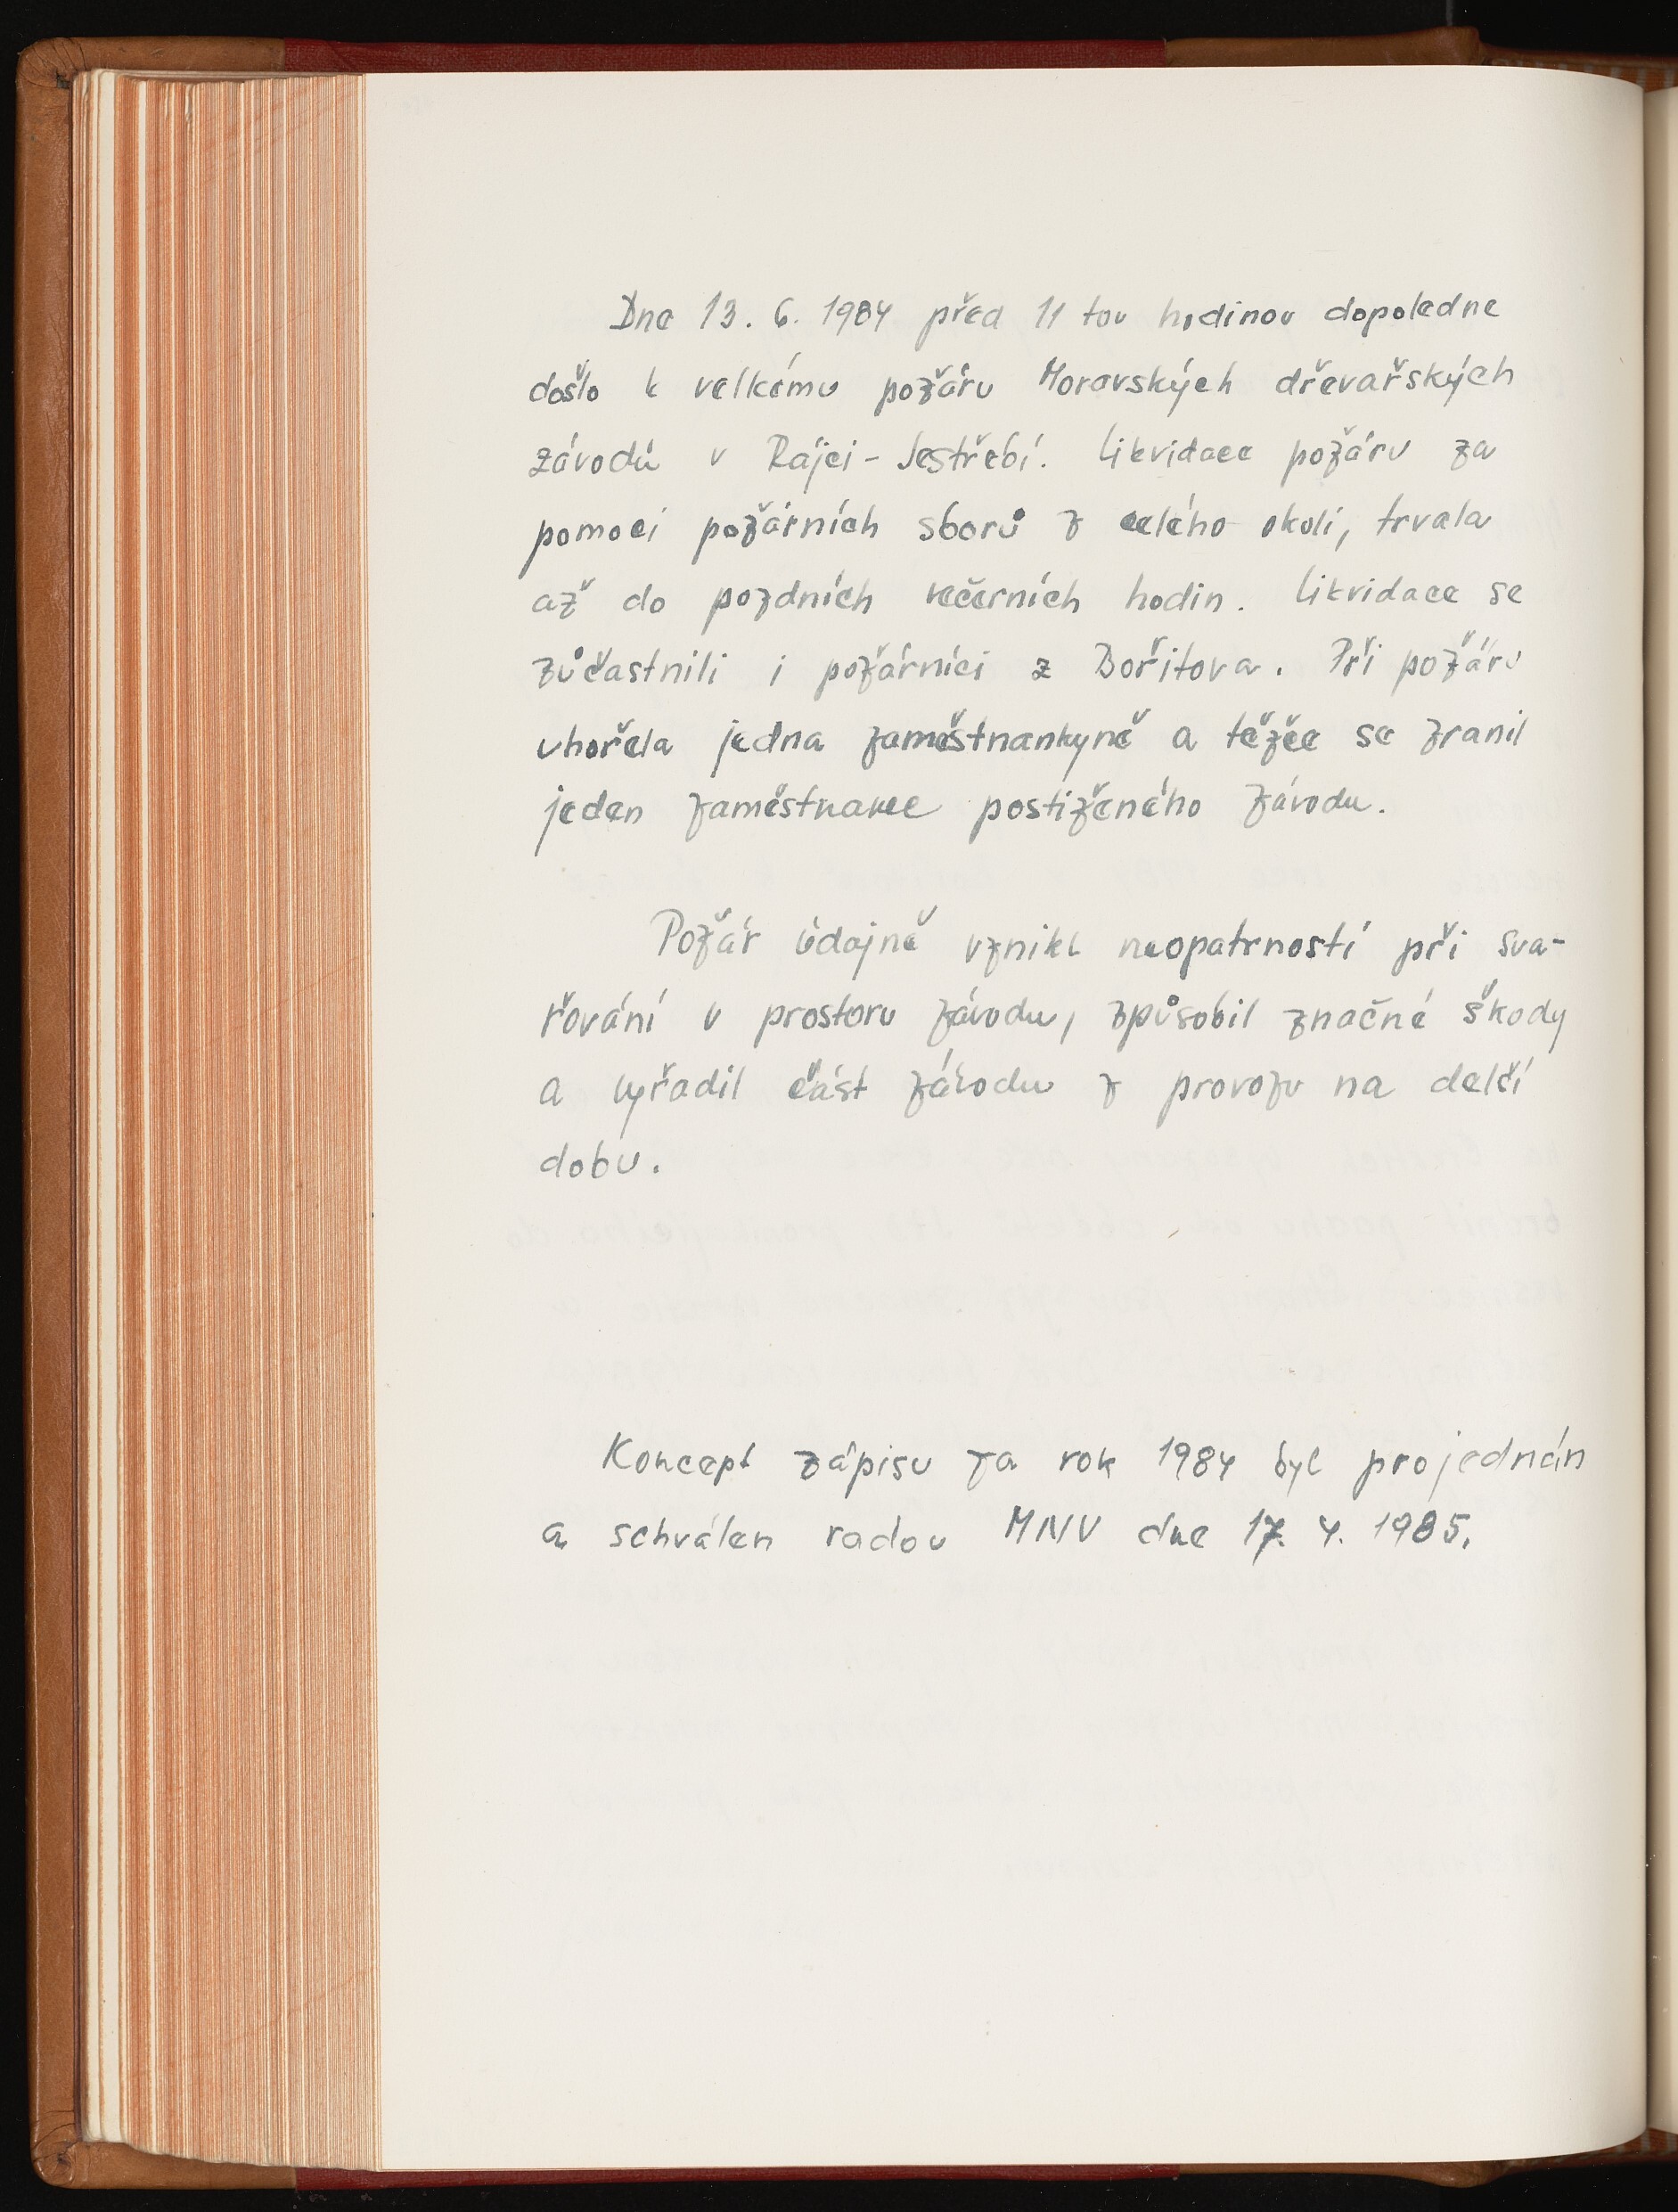 Dne 13. 6. 1984 před 11 tou hodinou dopoledne
došlo k velkému požáru Moravských dřevařských
závodů v Rájci - Jestřebí. Likvidace požáru za
pomoci požárních sborů z celého okolí, trvala
až do pozdních večerních hodin. Likvidace se
zůčastnili i požárníci z Bořitova. Při požáru
uhořela jedna zaměstnankyně a těžce se zranil
jeden zaměstnanec postiženého závodu.
Požár údajně vznikl neopatrností při sva-
řování v prostoru závodu, způsobil značné škody
a vyřadil část závodu z provozu na delší
dobu.
Koncept zápisu za rok 1984 byl projednán
a schválen radou MNV dne 17. 4. 1985.